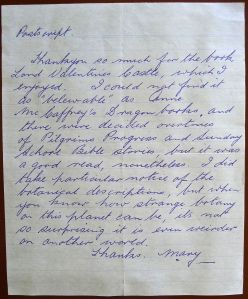 Postscript.
Thankyou so much for the book
Lord Valentines Castle, which I
enjoyed. I could not find it
as "believable" as Anne
McCaffrey's Dragon books, and
there were decided overtones
of Pilgrims Progress and Sunday
School Bible stories but it was
a good read, nonetheless. I did
take particular notice of the
botanical descriptions, but when
you know how strange botany
on this planet can be, it's not
so surprising it is even weirder
on another world.
Thanks. Mary